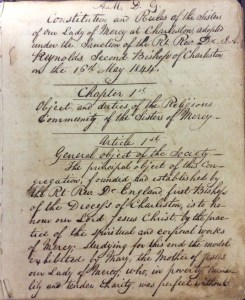 A. M. D. G.
Constitution and Rules of the Sisters
of our Lady of Mercy at Charleston, adopted
under the Sanction of the Rt. Rev. Dr. I. A.
Reynolds, Second Bishop of Charleston
on the 15th May 1844.
Chapter 1st
Object and duties of the Religious
Community of the Sisters of Mercy.
Article 1st
General object of the Society
The principal object of this Con-
gregation, founded and established by
the Rt Rev. Dr England, first Bishop
of the Diocess of Charleston, is to ho-
nour our Lord Jesus Christ by the prac-
tice of the spiritual and corporal works
of Mercy: Studying for this end the model
exhibited by Mary, the Mother of Jesus
our Lady of Mercy who, in poverty, humi-
lity and tender charity, was perfect without